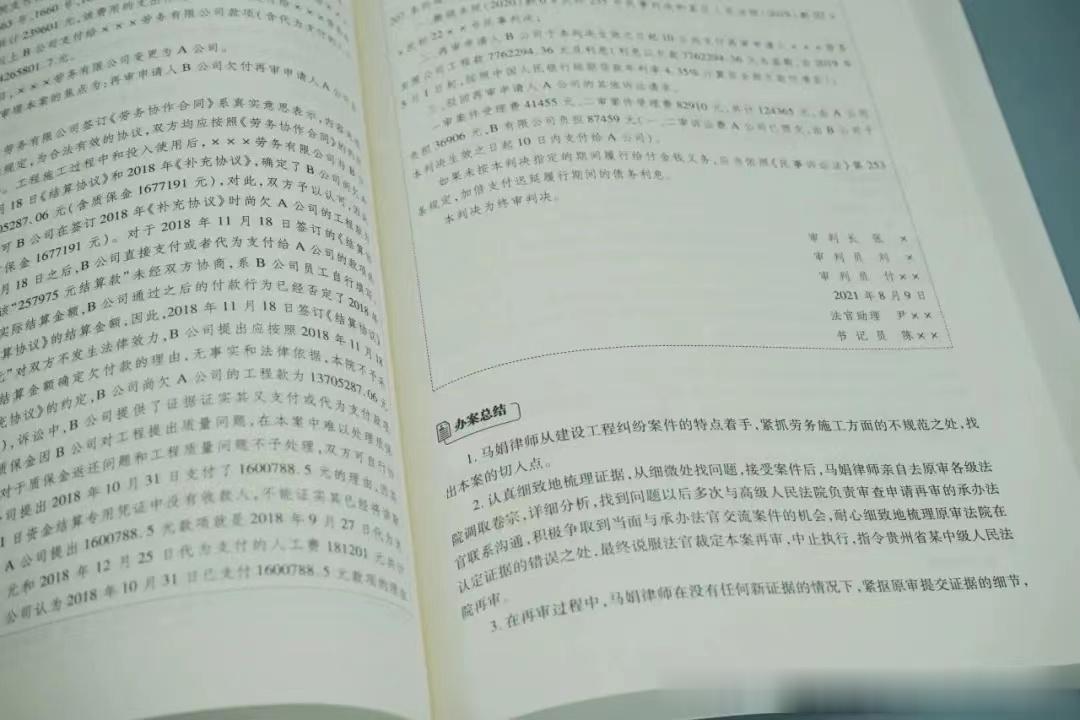 63年、1660号、
共计239601元，该费用的支出
以上B公司支付给×××劳务有限公司款项(含代为支付的人工
4265801.7元。
×××劳务有限公司变更为A公司。
审理本案的焦点为：再审申请人B公司欠付再审申请人A公司
劳务有限公司签订《劳务协作合同》系真实意思表示，内容
规定，为合法有效的协议，双方均应按照《劳务协作合同》的
。工程施工过程中和投入使用后，×××劳务有限公司
月18日《结算协议》和2018年《补充协议》，确定了B公司尚欠
05287.06元(含质保金1677191元)，对此，双方予以认可，因
可B公司在签订2018年《补充协议》时尚欠A公司的工程款为
质保金1677191元)。对于2018年11月18日签订的《结算
月18日之后，B公司直接支付或者代为支付给A公司的款项
该“257975元结算款”未经双方协商，系B公司员工自行填写，
实际结算金额，B公司通过之后的付款行为已经否定了2018年
算协议》的结算金额，因此，2018年11月18日签订《结算协议》
元”对双方不发生法律效力，B公司提出应按照2018年11月18
结算金额确定欠付款的理由，无事实和法律依据，本院不予采
充协议》的约定，B公司尚欠A公司的工程款为13705287.06元
)，诉讼中，B公司提供了证据证实其又支付或代为支付款项
质保金因B公司对工程提出质量问题，在本案中难以处理质保
对于质保金返还问题和工程质量问题不予处理，双方可自行
司提出2018年10月31日支付了1600788.5元的理由，因
1日资金结算专用凭证中没有收款人，不能证实其已经将该款
A公司提出1600788.5元款项就是2018年9月27日代为支
元和2018年12月25日代为支付的人工费181201元共计
公司认为2018年10月31日已支付1600788.5元款项的理由
207
一、撤销本院(2020)
×民初22××号民事判决；
二、再审申请人B公司于本判决生效之日起10日内支付再审申请人×××劳务
有限公司工程款7762294.36元及利息(利息以欠款7762294.36元为基数，自2019年
5月1日起，按照中国人民银行短期贷款年利率4.35%计算
三、驳回再审申请人A公司的其他诉讼请求。
一审案件受理费41455元，二审案件受理费82910元，共计124365元，由A公司
负担36906元，B有限公司负担87459元(一、二审诉讼费A公司已预交，由B公司于
本判决生效之日起10日内支付给A公司)。
如果未按本判决指定的期间履行给付金钱义务，应当依照《民事诉讼法》第253
条规定，加倍支付迟延履行期间的债务利息。
本判决为终审判决。
审判长 张×
审判员 刘×
审判员 付××
2021年8月9日
法官助理 尹××
书记员 陈××
办案总结
1.马娟律师从建设工程纠纷案件的特点着手，紧抓劳务施工方面的不规范之处，找
出本案的切入点。
2.认真细致地梳理证据，从细微处找问题，接受案件后，马娟律师亲自去原审各级法
院调取卷宗，详细分析，找到问题以后多次与高级人民法院负责审查申请再审的承办法
官联系沟通，积极争取到当面与承办法官交流案件的机会，耐心细致地梳理原审法院在
认定证据的错误之处，最终说服法官裁定本案再审，中止执行，指令贵州省某中级人民法
院再审。
3.在再审过程中，马娟律师在没有任何新证据的情况下，紧抠原审提交证据的细节，